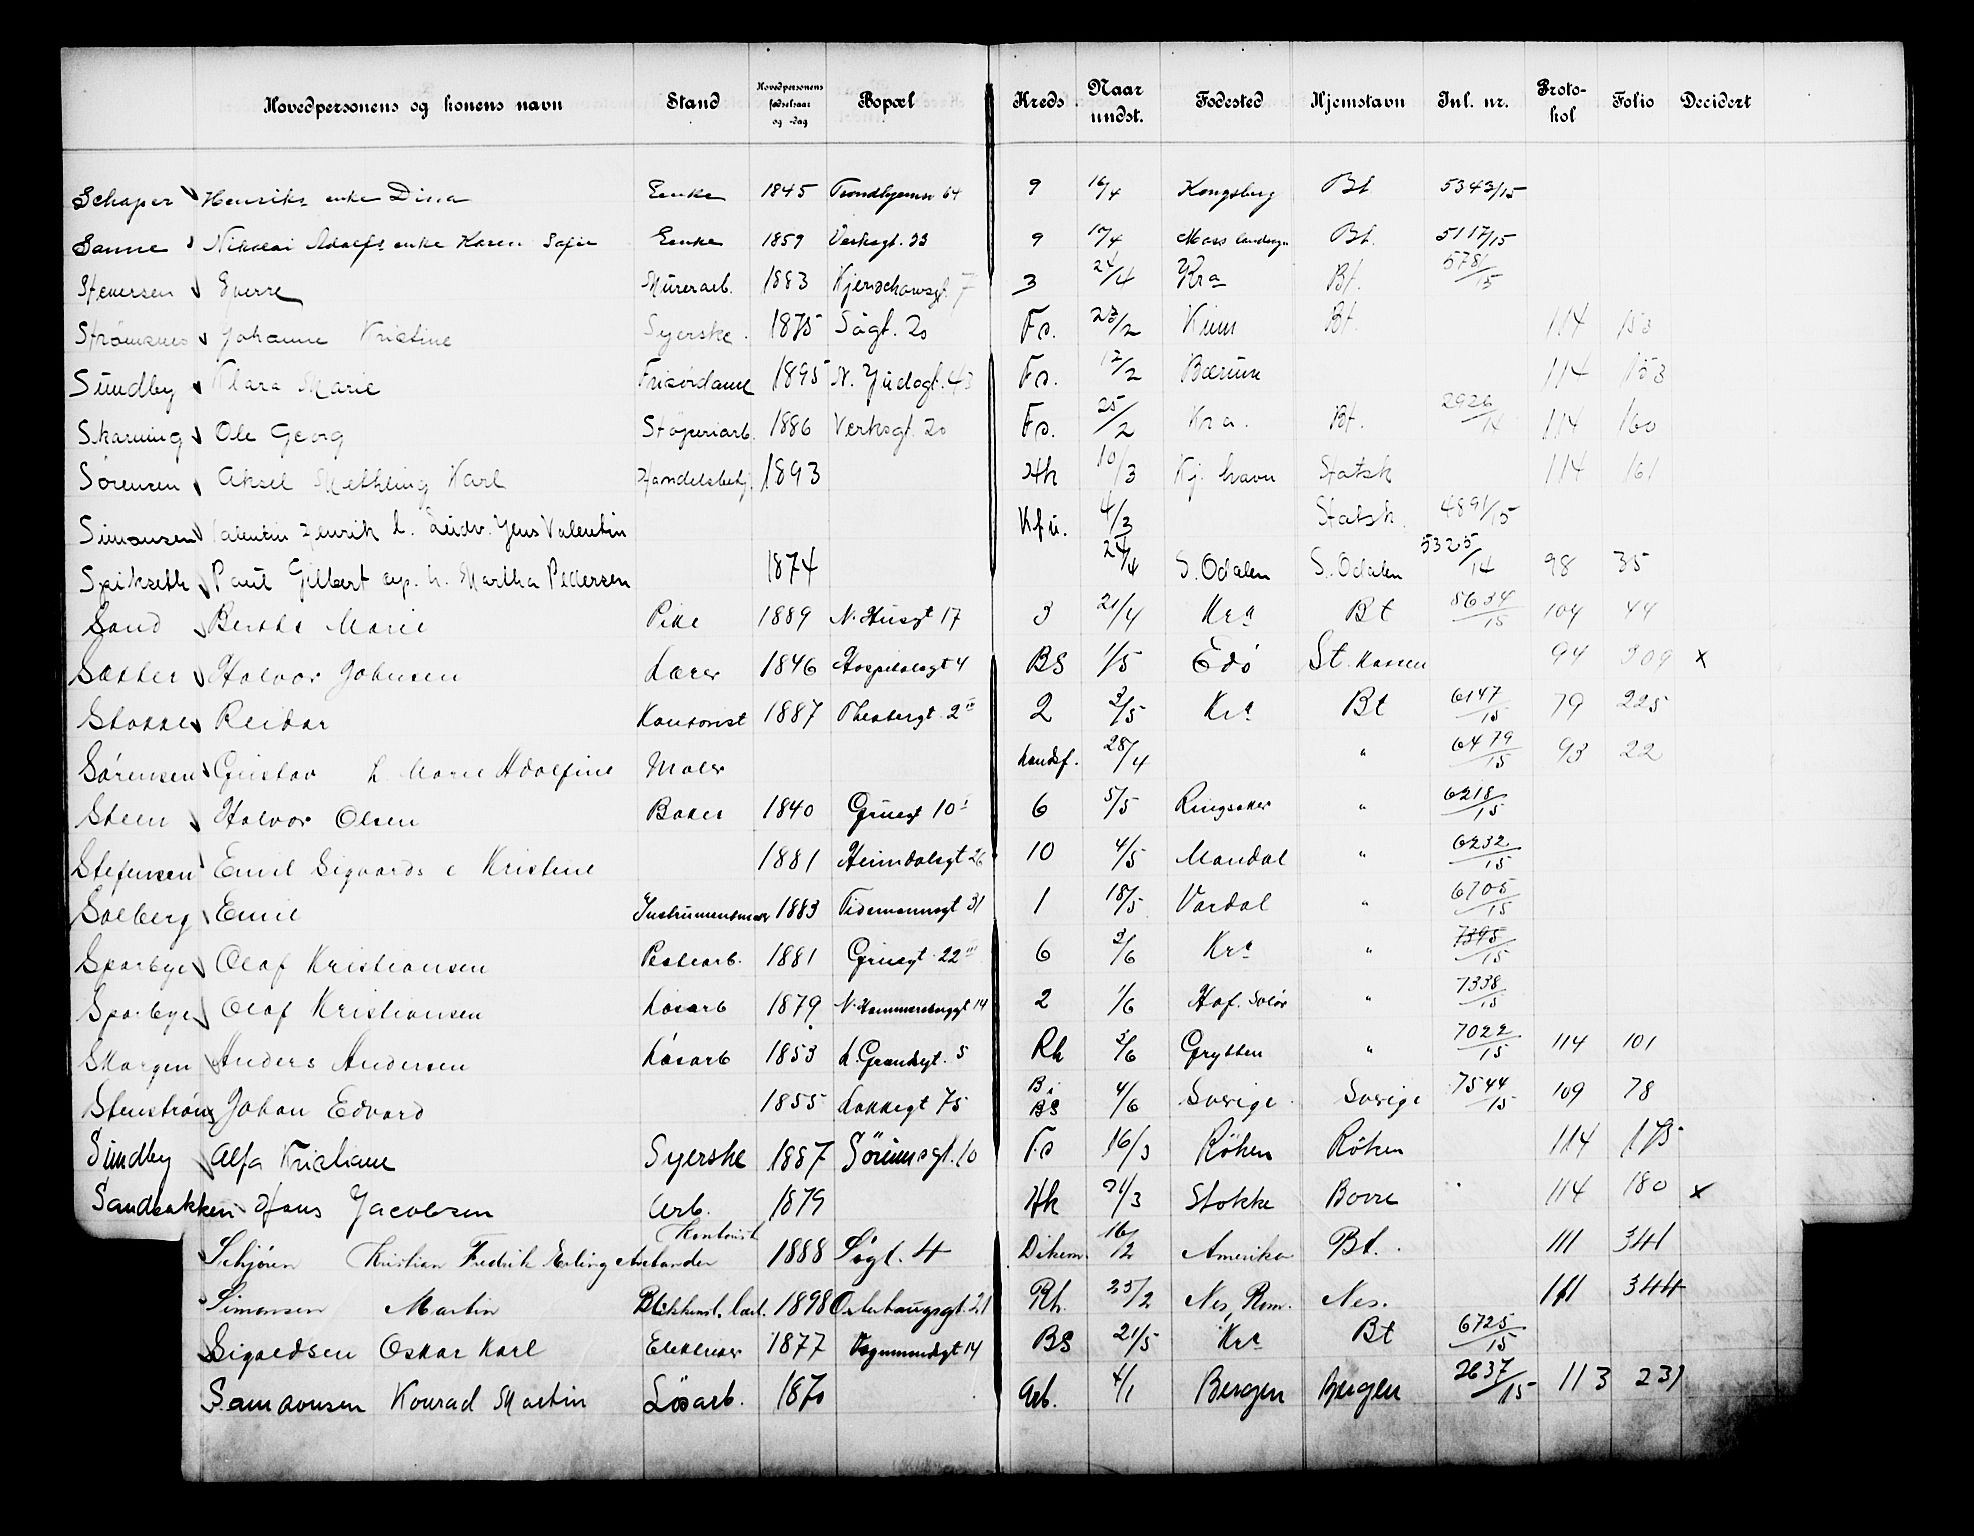 Hovedpersonens og konens navn Stand Hovedpersonens fødselsaar og -dag Bopæl Kreds Naar undst. Fødested Hjemstavn Inl. nr. Proto-kol Folio Decidert
Schaper Henriks enke Dina Enke 1845 Trondhjemsv 64 9 16/4 Kongsberg Bt 5343/15
Sanne Nikolai Adolfs enke Karen Sofie Enke 1859 Verksgt. 23 9 17/4 Moss landsogn Bt. 5117/15
Steversen Sverre Murerarb. 1883 Kjerschowsgt. 7 3 24/4 Kra Bt. 5781/15
Strømsnes Johanne Kristine Syerske 1875 Søgt. 20 Fo. 23/2 Bt. 114 153
Sundby Klara Marie Frisørdame 1895 43 Fo. 17/2 Bærum 114 153
Skarning Ole Georg Støperiarb. 1886 Verksgt. 20 Fo. 25/2 Kra. Bt. 2926/14 114 160
Sørensen Aksel Methling Karl Handelsbetj. 1893 Hk 10/3 Kj.havn Statsk 114 161
Simonsen Valentin Henrik h. Ludv. Jens Valentin Kfu. 4/3 Statsk. 4891/15
Spikseth Paul Gilbert op. h. Martha Pedersen 1874 24/4 S. Odalen S. Odalen 5325/14 98 35
Sand Berthe Marie Pike 1889 N. Husgt 17 3 21/4 Kra Bt 5634/15 104 44
Sæther Halvor Johnsen Lærer 1846 Hospitalsgt 4 BS 1/5 Edö St. kassen 94 309 x
Stokke Reidar Kontorist 1887 Theresesgt. 2 2 3/5 Kra Bt 6147/15 79 225
Sørensen Gustav h. Marie Adolfine Maler Landsf. 28/4 " 6479/15 93 22
Steen Halvor Olsen Baker 1840 Grünsgt 10 6 5/5 Ringsaker " 6218/15
Stefensen Emil Sigvards e Kristine 1881 Heimdalsgt 26 10 4/5 Mandal " 6232/15
Solberg Emil Instrumentmaker 1883 Tidemannsgt 31 1 18/5 Vardal " 6705/15
Sparbye Olaf Kristiansen Postarb. 1881 Grünsgt. 22 6 3/6 Kra " 7395/15
Sparbye Olaf Kristiansen Løsarb 1879 N. Hammersborggt 14 2 1/6 Hof. Solør " 7338/15
Skorgen Anders Andersen Løsarb 1853 L. Grensegt. 5 Rh 3/6 Grytten " 7022/15 114 101
Stenstrøm Johan Edvard 1855 Lakkegt 75 Bi BS 4/6 Sverige Sverige 7544/15 109 78
Sundby Alfa Kristiane Syerske 1887 Sörensgt. 10 Fo 16/3 Röken Röken 114 175
Sandbakken Hans Jacobsen Arb. 1879 Hk 21/3 Stokke Borre 114 180 x
Schjøren Kristian Fredrik Erling Antander Kontorist 1888 Søgt. 4 Dikem. 16/2 Amerika Bt. 111 341
Simonsen Martin Blikkensl. lærl. 1898 Osterhaugsgt. 21 Rh. 25/2 Nes, Rom. Nes. 111 344
Sigvedsen Oskar Karl Elektriker 1877 Vognmandsgt 14 BS 21/5 Kra Bt 6725/15
Samsonsen Konrad Martin Løsarb. 1870 Arb. 4/1 Bergen Bergen 2637/15 113 231